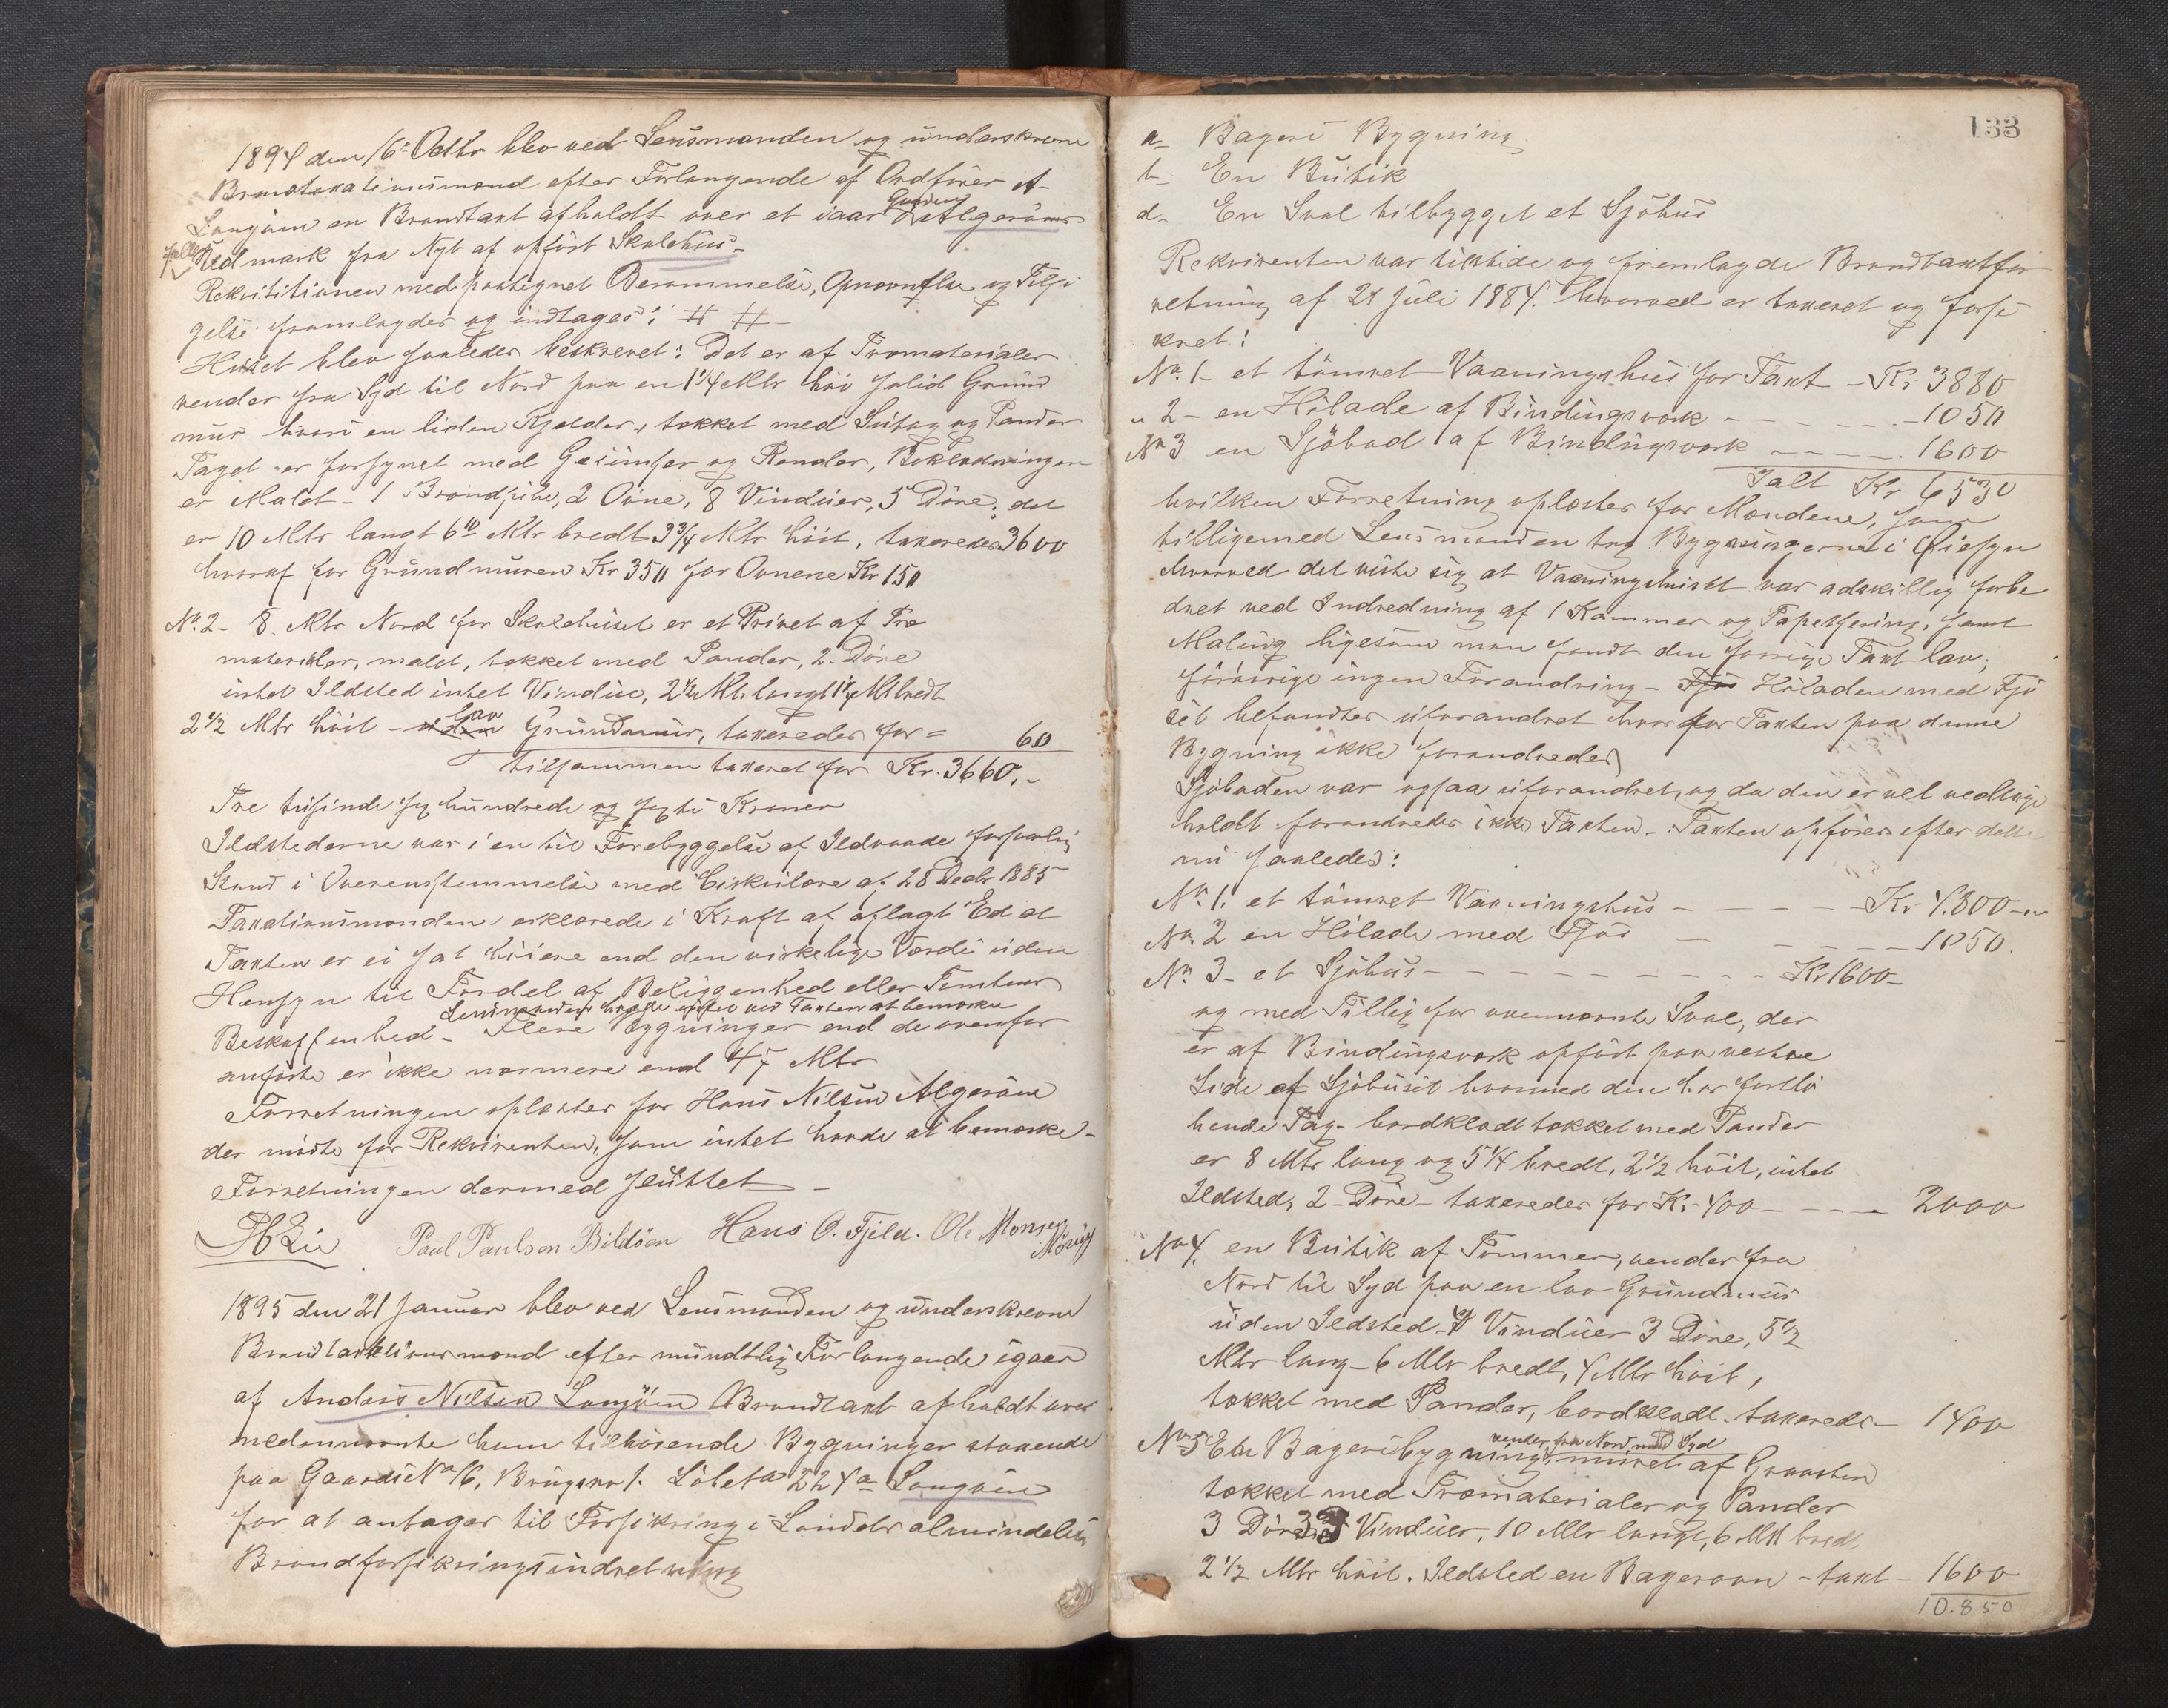 1894 den 16 Octbr blev ved Lensmanden og underskrevne
Brandtaxationsmænd efter Forlangende af Ordfører A
Langøen en Brandtaxt afholdt over et iaar paa Gaarden Algerøens
fælles Udmark fra Nyt af opført Skolehus.
Rekvisitionen med paategnet Berammelse, Opnævnelse og Tilsi
gelse fremlagdes og indtages: # #
Huset blev saaledes beskrevet: Det er af Træmaterialer
vender fra Syd til Nord paa en 1 1/4 Mtr høi solid Grund
mur hvori en liden Kjelder, tækket med Sutag og Pander
Taget er forsynet med Gesimser og Render, Beklædningen
er Malet - 1 Brandpibe, 2 Ovne, 8 Vinduer, 5 Døre, det
er 10 Mtr langt 6 Mtr bredt 3 3/4 Mtr høit, taxeredes 3600
hvoraf for Grundmuren Kr 350 for Ovnene Kr 150
No. 2 - 8 Mtr Nord for Skolehuset er et Privet af Træ
materialer, malet, tækket med Pander, 2 Døre
intet Ildsted intet Vindue, 2 1/2 Mtr langt 1 1/2 Mtr bredt
2 1/2 Mtr høit - uden lav Grundmur, taxeredes for = 60
tilsammen taxeret for Kr. 3660.-
Tre tusinde sex hundrede og sexti Kroner
Ildstederne var i en til Forebyggelse af Ildvaade forsvarlig
Stand i Overensstemmelse med Cirkulære af 28 Decbr 1885
Taxationsmænden erklærede i Kraft af aflagt Ed at
Taxten er ei sat høiere end den virkelige Værdi uden
Hensyn til Fordel af Beliggenhed eller Tomtens
Lensmanden havde intet ved Taxten at bemærke
Beskaffenhed - Flere Bygninger end de ovenfor
anførte er ikke nærmere end 47 Mtr
Forretningen oplæstes for Hans Nilsen Algerøen
der mødte for Rekvirenten, som intet havde at bemærke -
Forretningen dermed sluttet -
Paul Paulsen Bildøen Hans O. Fjeld. Ole Monsen
1895 den 21 Januar blev ved Lensmanden og underskrevne
Brandtaxtionsmænd efter mundtlig Forlangende igaar
af Anders Nilsen Langøen Brandtaxt afholdt over
nedennævnte ham tilhørende Bygninger staaende
paa Gaards No 16, Brugsno 1. Løbeno 224a Langøen
for at antages til Forsikring i Landets almindelige
Brandforsikringsindretning
133
a - Bageri Bygning
b - En Butik
d - En Sval tilbygget et Sjøhus
Rekvirenten var tilstede og fremlagde Brandtaxtfor
retning af 21 Juli 1884. hvorved er taxeret og forsi
kret:
No. 1 - et tømret Vaaningshus for Taxt - Kr. 3880
" 2 - en Hølade af Bindingsværk - - - - 1050
No 3 en Sjøbod af Bindingsværk - - - - 1600
Ialt Kr 6530
hvilken Forretning oplæstes for Mændene, som
tilligemed Lensmanden tog Bygningerne i Øiesyn
hvorved det viste sig at Vaaningshuset var adskillig forbe
dret ved Indredning af 1 Kammer og Tapetsering, samt
Maling ligesom man fandt den forrige Taxt lav,
forøvrigt ingen Forandring - Fjøs Høladen med Fjø
set befandtes uforandret hvorfor Taxten paa denne
Bygning ikke forandredes
Sjøboden var ogsaa uforandret, og da den er vel vedlige
holdt forandredes ikke Taxten - Taxten opføres efter dette
nu saaledes:
No. 1. et tømret Vaaningshus - - - - Kr 4.800 -
No. 2 en Hølade med Fjøs - - - - 1050.
No 3 - et Sjøhus - - - - - - - Kr 1600 -
og med Tillæg for ovennævnte Sval, der
er af Bindingsværk opført paa vestre
Side af Sjøhuset hvormed den har fortlø
bende Tag - bordklædt tækket med Pander
er 8 Mtr lang og 5 1/4 bredt, 2 1/2 høit, intet
Ildsted, 2 Døre - taxeredes for Kr 400 - - - - 2000
No 4. en Butik af Tømmer, vender fra
Nord til Syd paa en lav Grundmur
uden Ildsted - Vinduer 3 Døre, 5 1/2
Mtr lang - 6 Mtr bredt, 4 Mtr høit,
tækket med Pander, bordklædt. taxeredes - 1400
No 5 En Bageribygning, vender fra Nord mod Syd muret af Graasten
tækket med Træmaterialer og Pander
3 Døre 3 Vinduer, 10 Mtr langt, 6 Mtr bredt
2 1/2 Mtr høit. Ildsted en Bagerovn - taxt - 1600
10.850